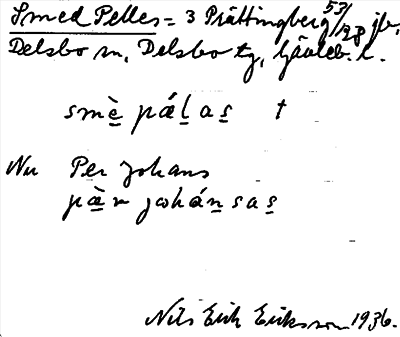 Smed Pelles = 3 Prästingberg 53/28 jb,
Delsbo sn, Delsbo tg, Gävleb. l.
smè pálas †
Nu Per Johans
pær johánsas
Nils Erik Eriksson 1936.